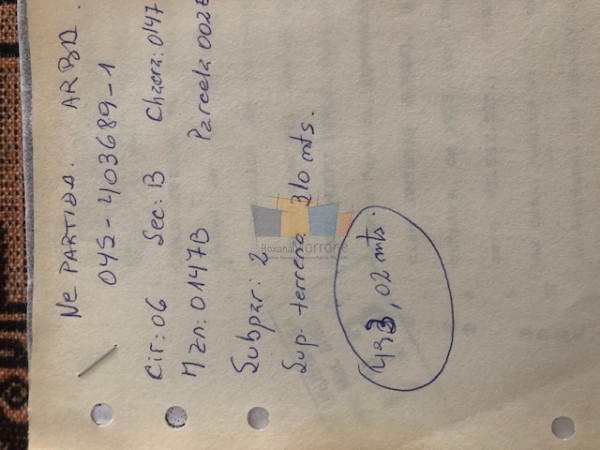 Nº PARTIDA. ARBA.
045-403689-1
Cir: 06 Sec: B Chacra: 0147
Mzn: 0147B Parcela 0028
Subpar: 2
Sup. terreno 310 mts.
,02 mts.
Roxana Torrone